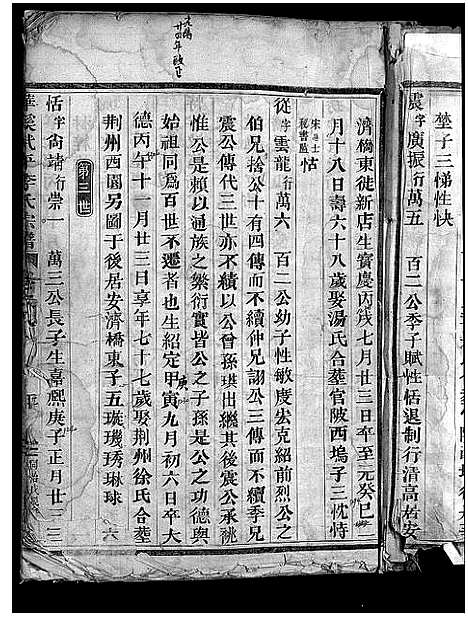 埜子三悌性快
震字廣振行萬五 百二公季子賦性恬退制行清高始安
濟橋東徙新店生寶慶丙戌七月廿三日卒至元癸巳二
月十八日壽六十八歲娶湯氏合塟官陂西塢子三忱恃
怙
宋進士
秘書監
從字雲龍行萬六 百二公幼子性敏度宏克紹前烈公之
伯兄捨公十四傳而不續仲兄詡公三傳而不續季兄
震公傳代三世亦不續以公曾孫琪出繼其後震公承祧
惟公是賴以通族之繁衍實皆公之子孫是公之功德與
始祖同爲百世不遷者也生紹定甲寅九月初六日卒大
庚
德丙午十一月廿三日享年七十七歲娶荆州徐氏合塟
荆州西園另圖于後居安濟橋東子五璇璣琇琳球
第三世
恬字尙諸行崇一 萬三公長子生嘉熙庚子正月廿三
李氏宗譜